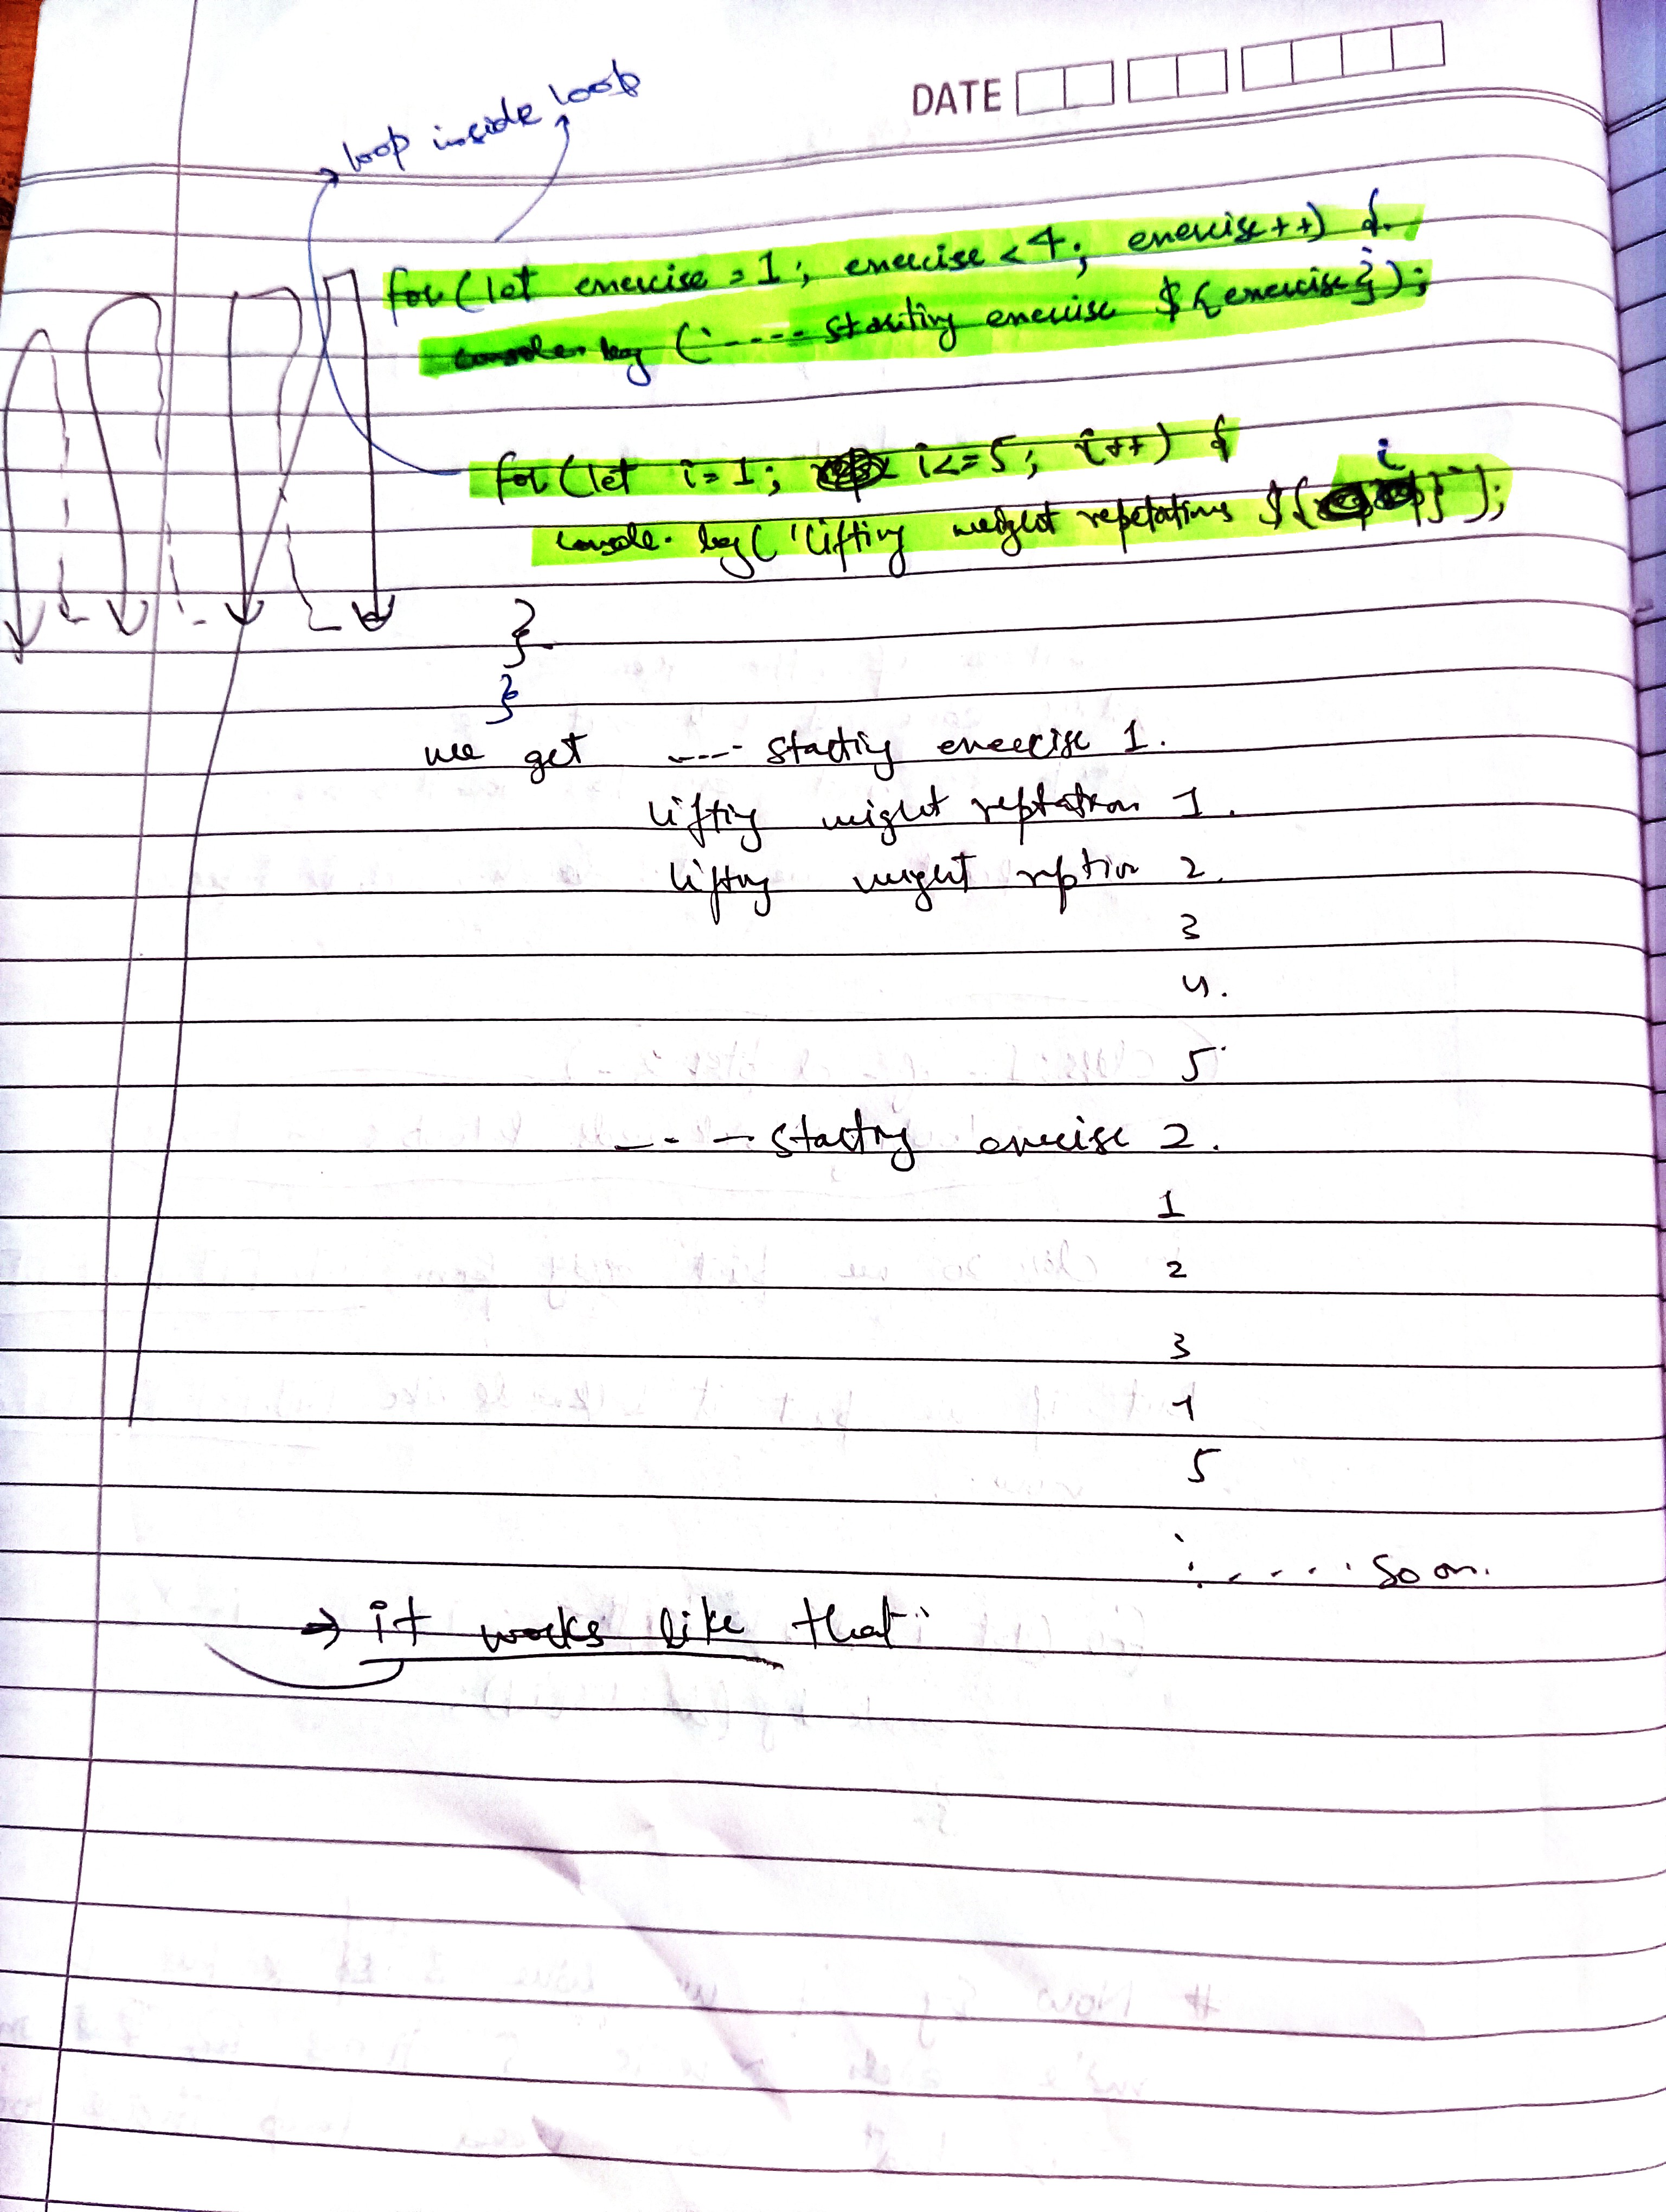 DATE
loop inside loop
for (let exercise = 1; exercise < 4; exercise++) {
console.log (`---- starting exercise ${exercise});
for (let i = 1; i <= 5; i++) {
console.log ('lifting weight repetations ${i}`);
}
}
we get ---- starting exercise 1.
lifting weight reptation 1.
lifting weight reption 2.
3
4.
5
---- starting exercise 2.
1
2
3
4
5
: ..... So on.
→ it works like that